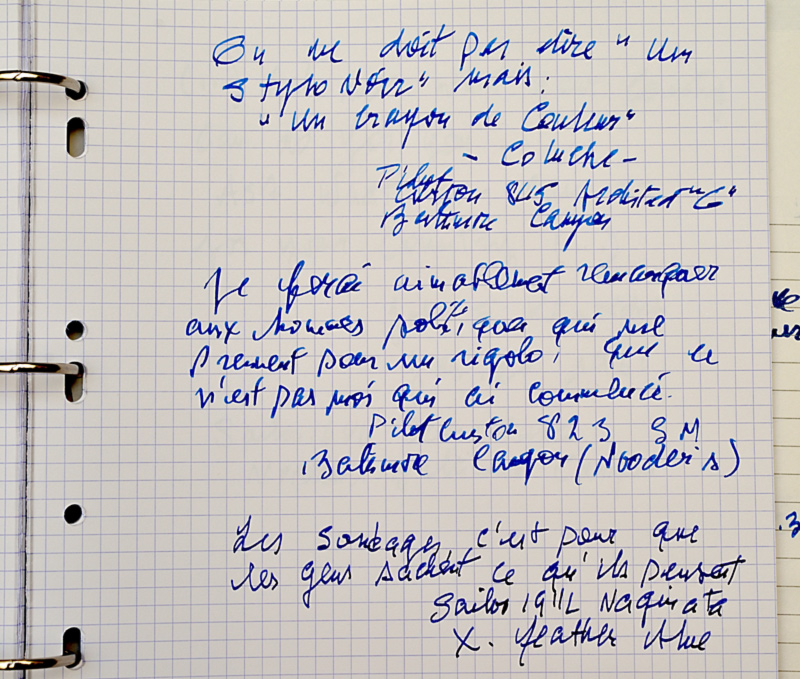 On ne doit pas dire "Un
Stylo Noir" mais:
"Un crayon de Couleur"
- Coluche -
Pilot
Custom 845 Architect "G"
Baltimore Canyon
Je ferai aimablement remarquer
aux hommes politiques qui me
prennent pour un rigolo, que ce
n'est pas moi qui ai commencé.
Pilot Custom 823 M
Baltimore Canyon (Nooder's)
Les sondages c'est pour que
les gens sachent ce qu'ils pensent
Sailor 1911L Naginata
X. feather blue
.3